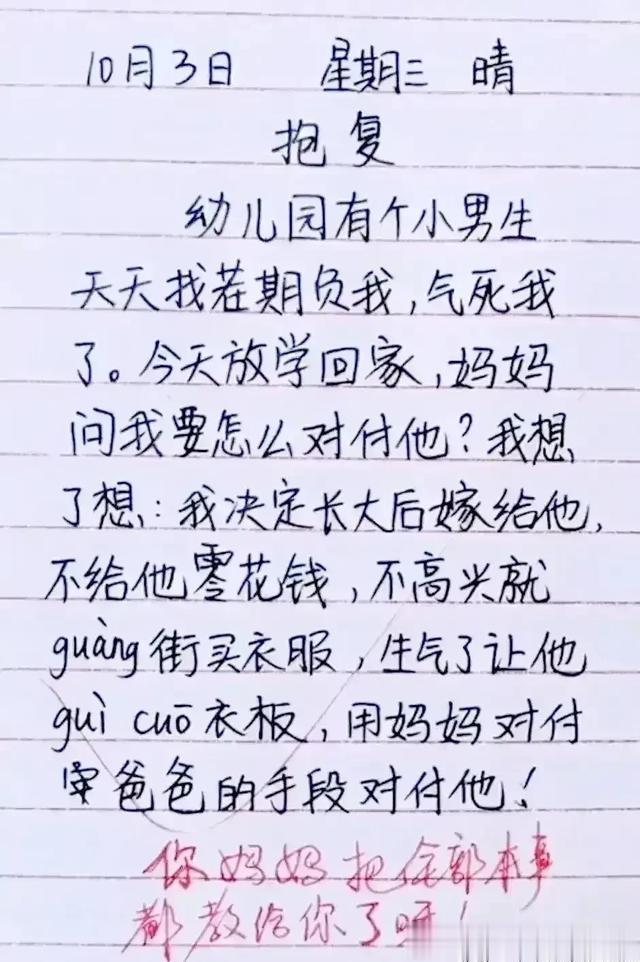 10月3日 星期三 晴
抱复
幼儿园有个小男生
天天找茬期负我,气死我
了。今天放学回家,妈妈
问我要怎么对付他?我想
了想:我决定长大后嫁给他,
不给他零花钱,不高兴就
guàng街买衣服,生气了让他
guì cuō衣板,用妈妈对付
爸爸的手段对付他!
你妈妈把全部本事
都教给你了呀!